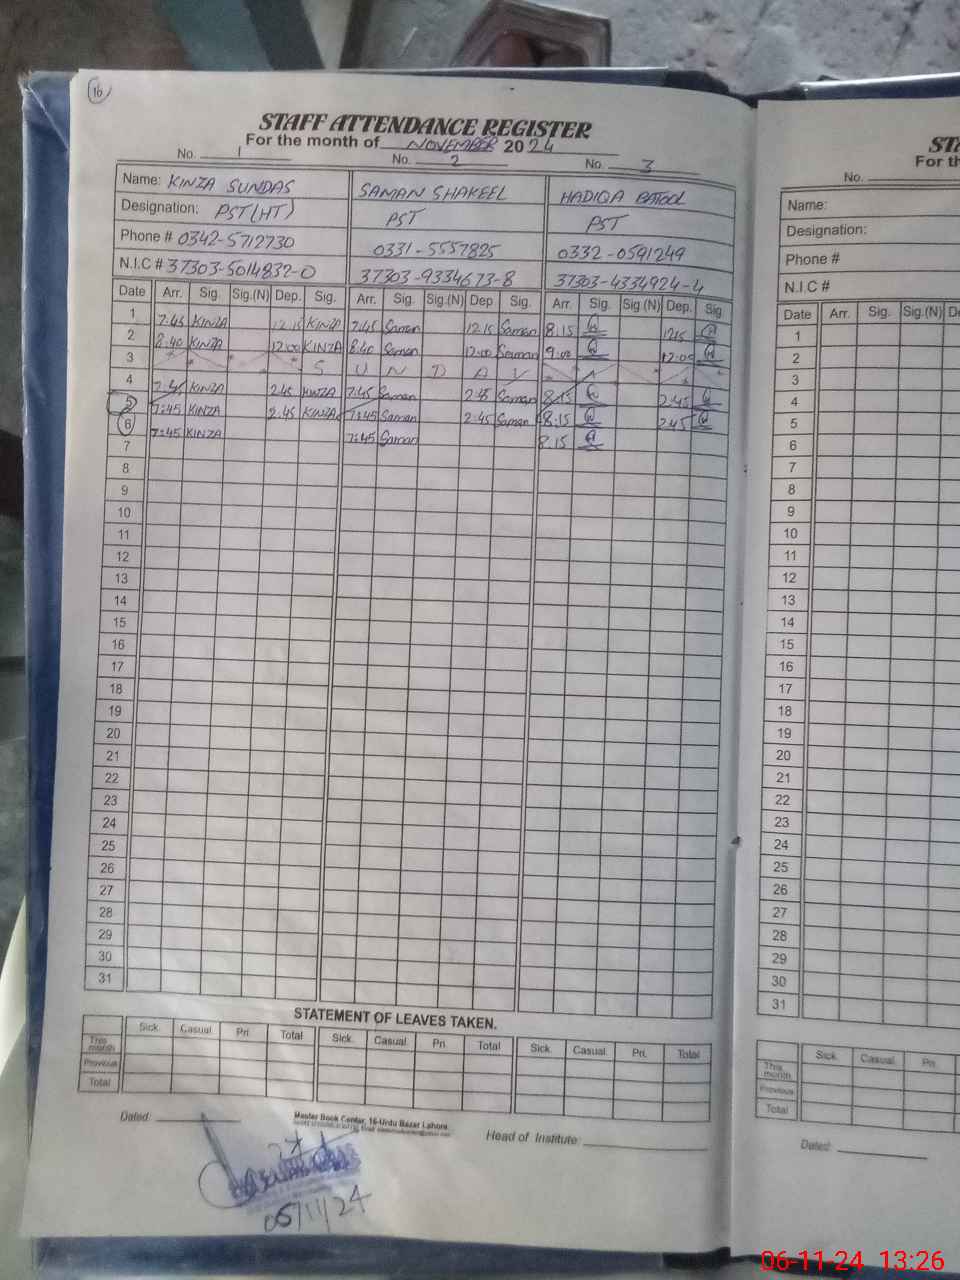 16
STAFF ATTENDANCE REGISTER
For the month of NOVEMBER 2024
No. 1 No. 2 No. 3
Name: KINZA SUNDAS SAMAN SHAKEEL HADIQA BATOOL
Designation: PST(HT) PST PST
Phone # 0342-5712730 0331-5557825 0332-0591249
N.I.C # 37303-5014832-0 37303-9334673-8 37303-4334924-4
Date Arr. Sig. Sig.(N) Dep. Sig. Arr. Sig. Sig.(N) Dep Sig. Arr. Sig. Sig.(N) Dep. Sig.
1 7.45 KINZA 12.15 KINZA 7.45 Saman 12.15 Saman 8.15 12.15
2 8.40 KINZA 12.00 KINZA 8.40 Saman 12.00 Saman 9.00 12.00
3 S U N D A Y
4 7.45 KINZA 2.45 KINZA 7.45 Saman 2.45 Saman 8.15 2.45
5 7:45 KINZA 2.45 KINZA 7:45 Saman 2.45 Saman 8.15 2.45
6 7:45 KINZA 7.45 Saman 8.15
7
8
9
10
11
12
13
14
15
16
17
18
19
20
21
22
23
24
25
26
27
28
29
30
31
STATEMENT OF LEAVES TAKEN.
Sick. Casual. Pri. Total Sick. Casual. Pri. Total Sick. Casual. Pri. Total
This month
Previous
Total
Dated: Master Book Center, 16-Urdu Bazar Lahore. Head of Institute:
05/11/24
STA
For th
No.
Name:
Designation:
Phone #
N.I.C #
Date Arr. Sig. Sig.(N) De
1
2
3
4
5
6
7
8
9
10
11
12
13
14
15
16
17
18
19
20
21
22
23
24
25
26
27
28
29
30
31
Sick. Casual. Pri.
This month
Previous
Total
Dated:
06-11-24 13:26